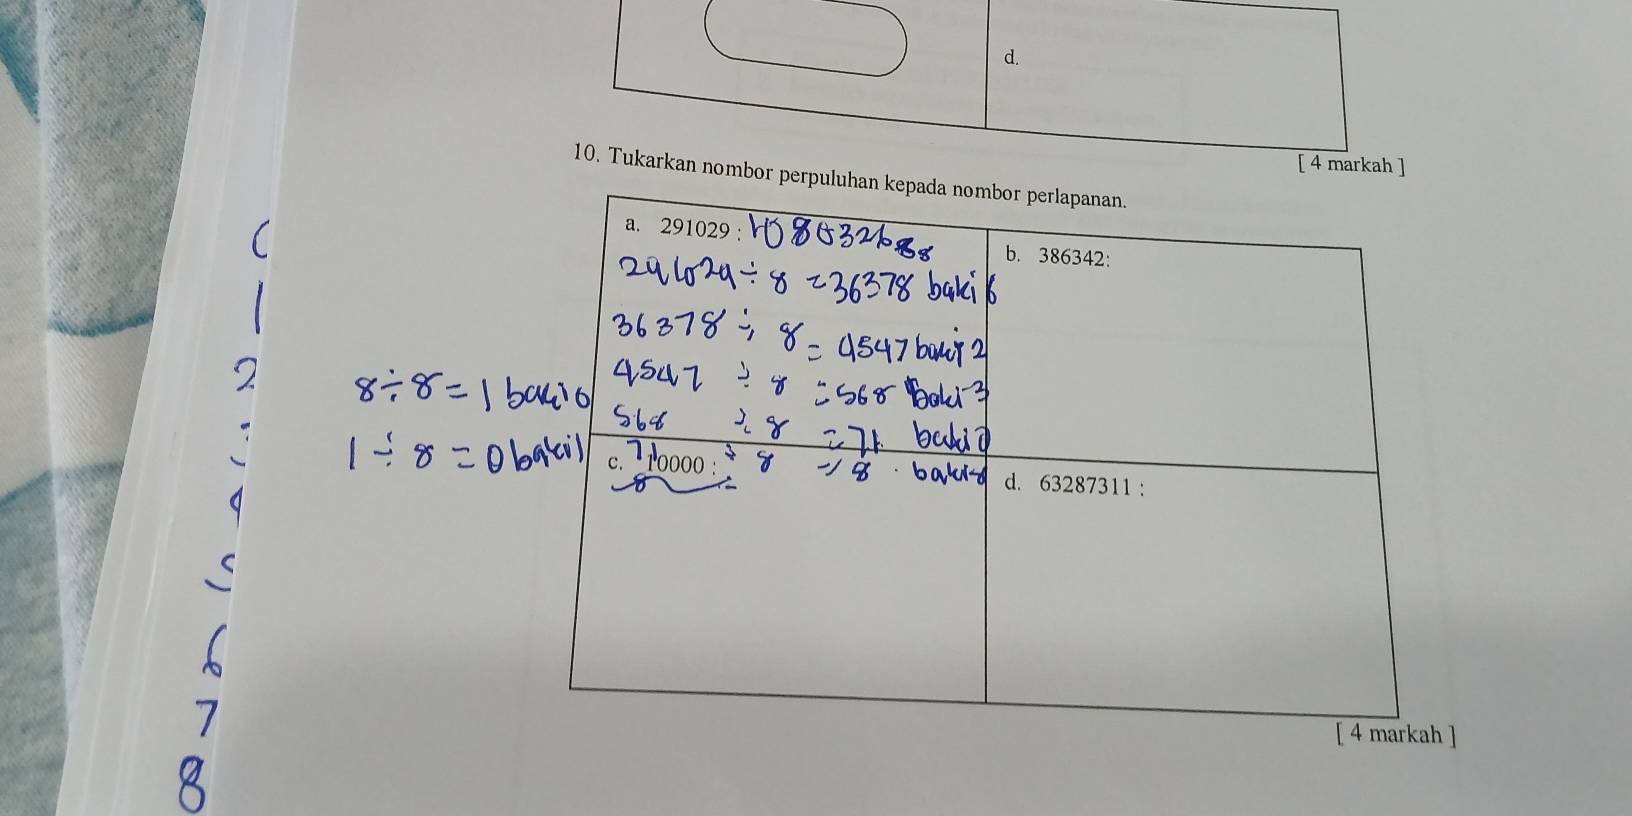 d.
[ 4 markah ]
10. Tukarkan nombor perpuluhan kepada nombor perlapanan.
a. 291029 :
b. 386342:
291029 ÷ 8 = 36378 baki 6
36378 ÷ 8 = 4547 baki 2
4547 ÷ 8 = 568 Baki 3
568 ÷ 8 = 71 baki 0
8 ÷ 8 = 1 baki 0
1 ÷ 8 = 0 baki 1
c. 710000 :
71 ÷ 8 = 8 baki
8 ÷
d. 63287311 :
[ 4 markah ]
0
1
2
3
4
5
6
7
8